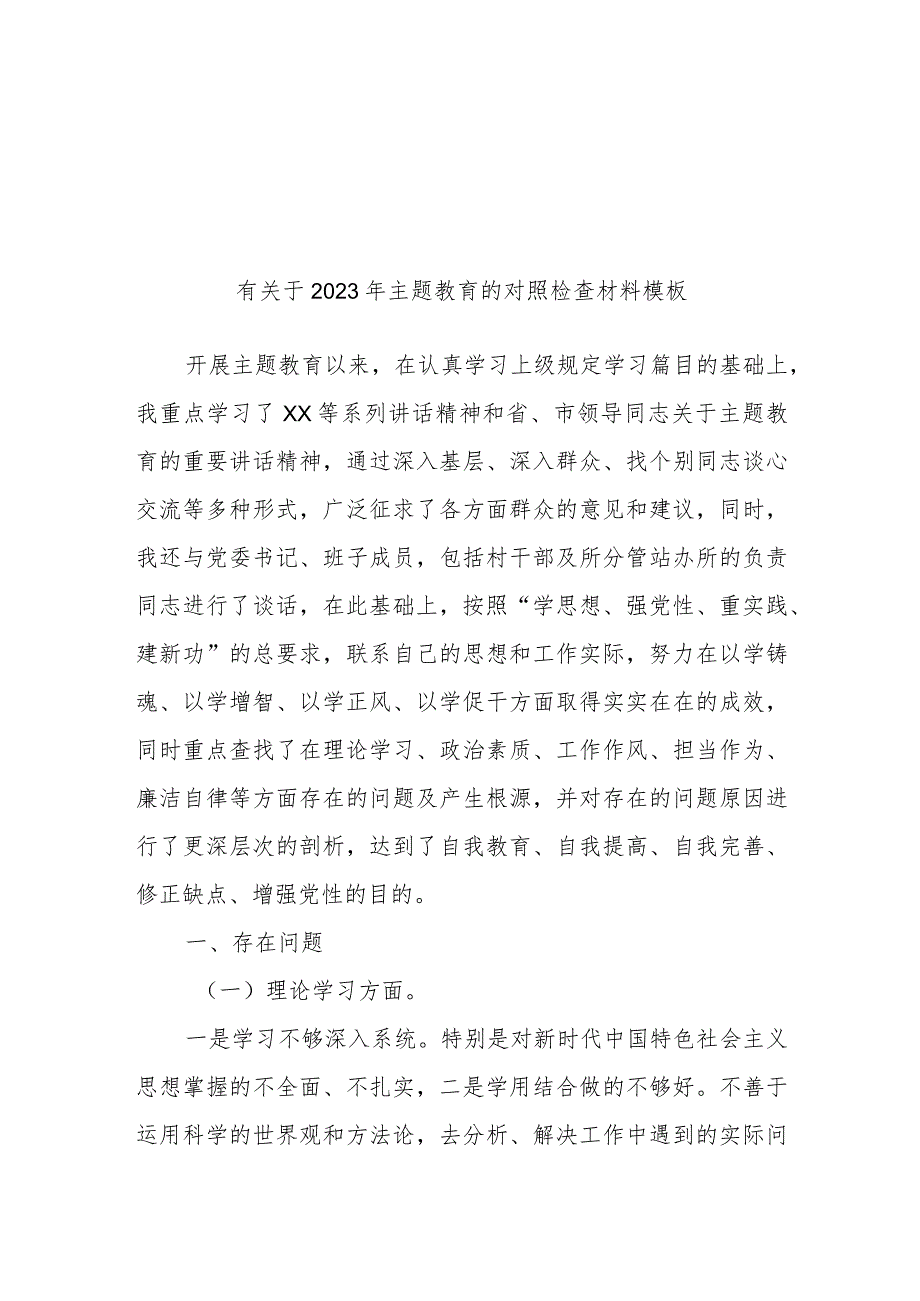 有关于 2023 年主题教育的对照检查材料模板
开展主题教育以来，在认真学习上级规定学习篇目的基础上，
我重点学习了 XX 等系列讲话精神和省、市领导同志关于主题教
育的重要讲话精神，通过深入基层、深入群众、找个别同志谈心
交流等多种形式，广泛征求了各方面群众的意见和建议，同时，
我还与党委书记、班子成员，包括村干部及所分管站办所的负责
同志进行了谈话，在此基础上，按照“学思想、强党性、重实践、
建新功”的总要求，联系自己的思想和工作实际，努力在以学铸
魂、以学增智、以学正风、以学促干方面取得实实在在的成效，
同时重点查找了在理论学习、政治素质、工作作风、担当作为、
廉洁自律等方面存在的问题及产生根源，并对存在的问题原因进
行了更深层次的剖析，达到了自我教育、自我提高、自我完善、
修正缺点、增强党性的目的。
一、存在问题
（一）理论学习方面。
一是学习不够深入系统。特别是对新时代中国特色社会主义
思想掌握的不全面、不扎实，二是学用结合做的不够好。不善于
运用科学的世界观和方法论，去分析、解决工作中遇到的实际问